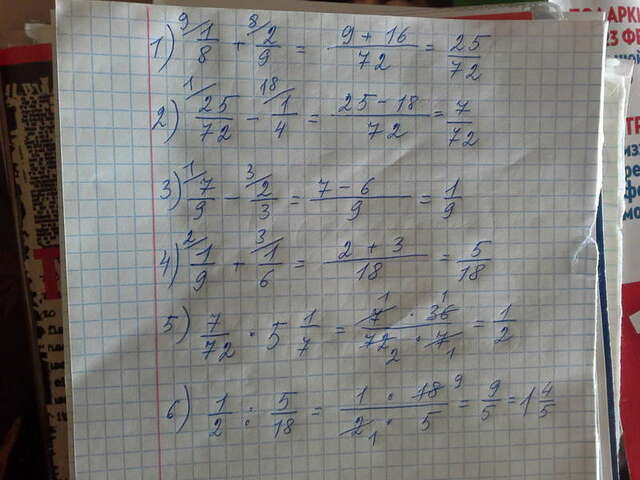 1) ⁹⁄ 1/8 + ⁸⁄ 2/9 = (9 + 16)/72 = 25/72
2) ¹⁄ 25/72 - ¹⁸⁄ 1/4 = (25 - 18)/72 = 7/72
3) ¹⁄ 7/9 - ³⁄ 2/3 = (7 - 6)/9 = 1/9
4) ²⁄ 1/9 + ³⁄ 1/6 = (2 + 3)/18 = 5/18
5) 7/72 · 5 1/7 = (7 ¹ · 36 ¹)/(72 ₂ · 7 ₁) = 1/2
6) 1/2 : 5/18 = (1 · 18 ⁹)/(2 ₁ · 5) = 9/5 = 1 4/5